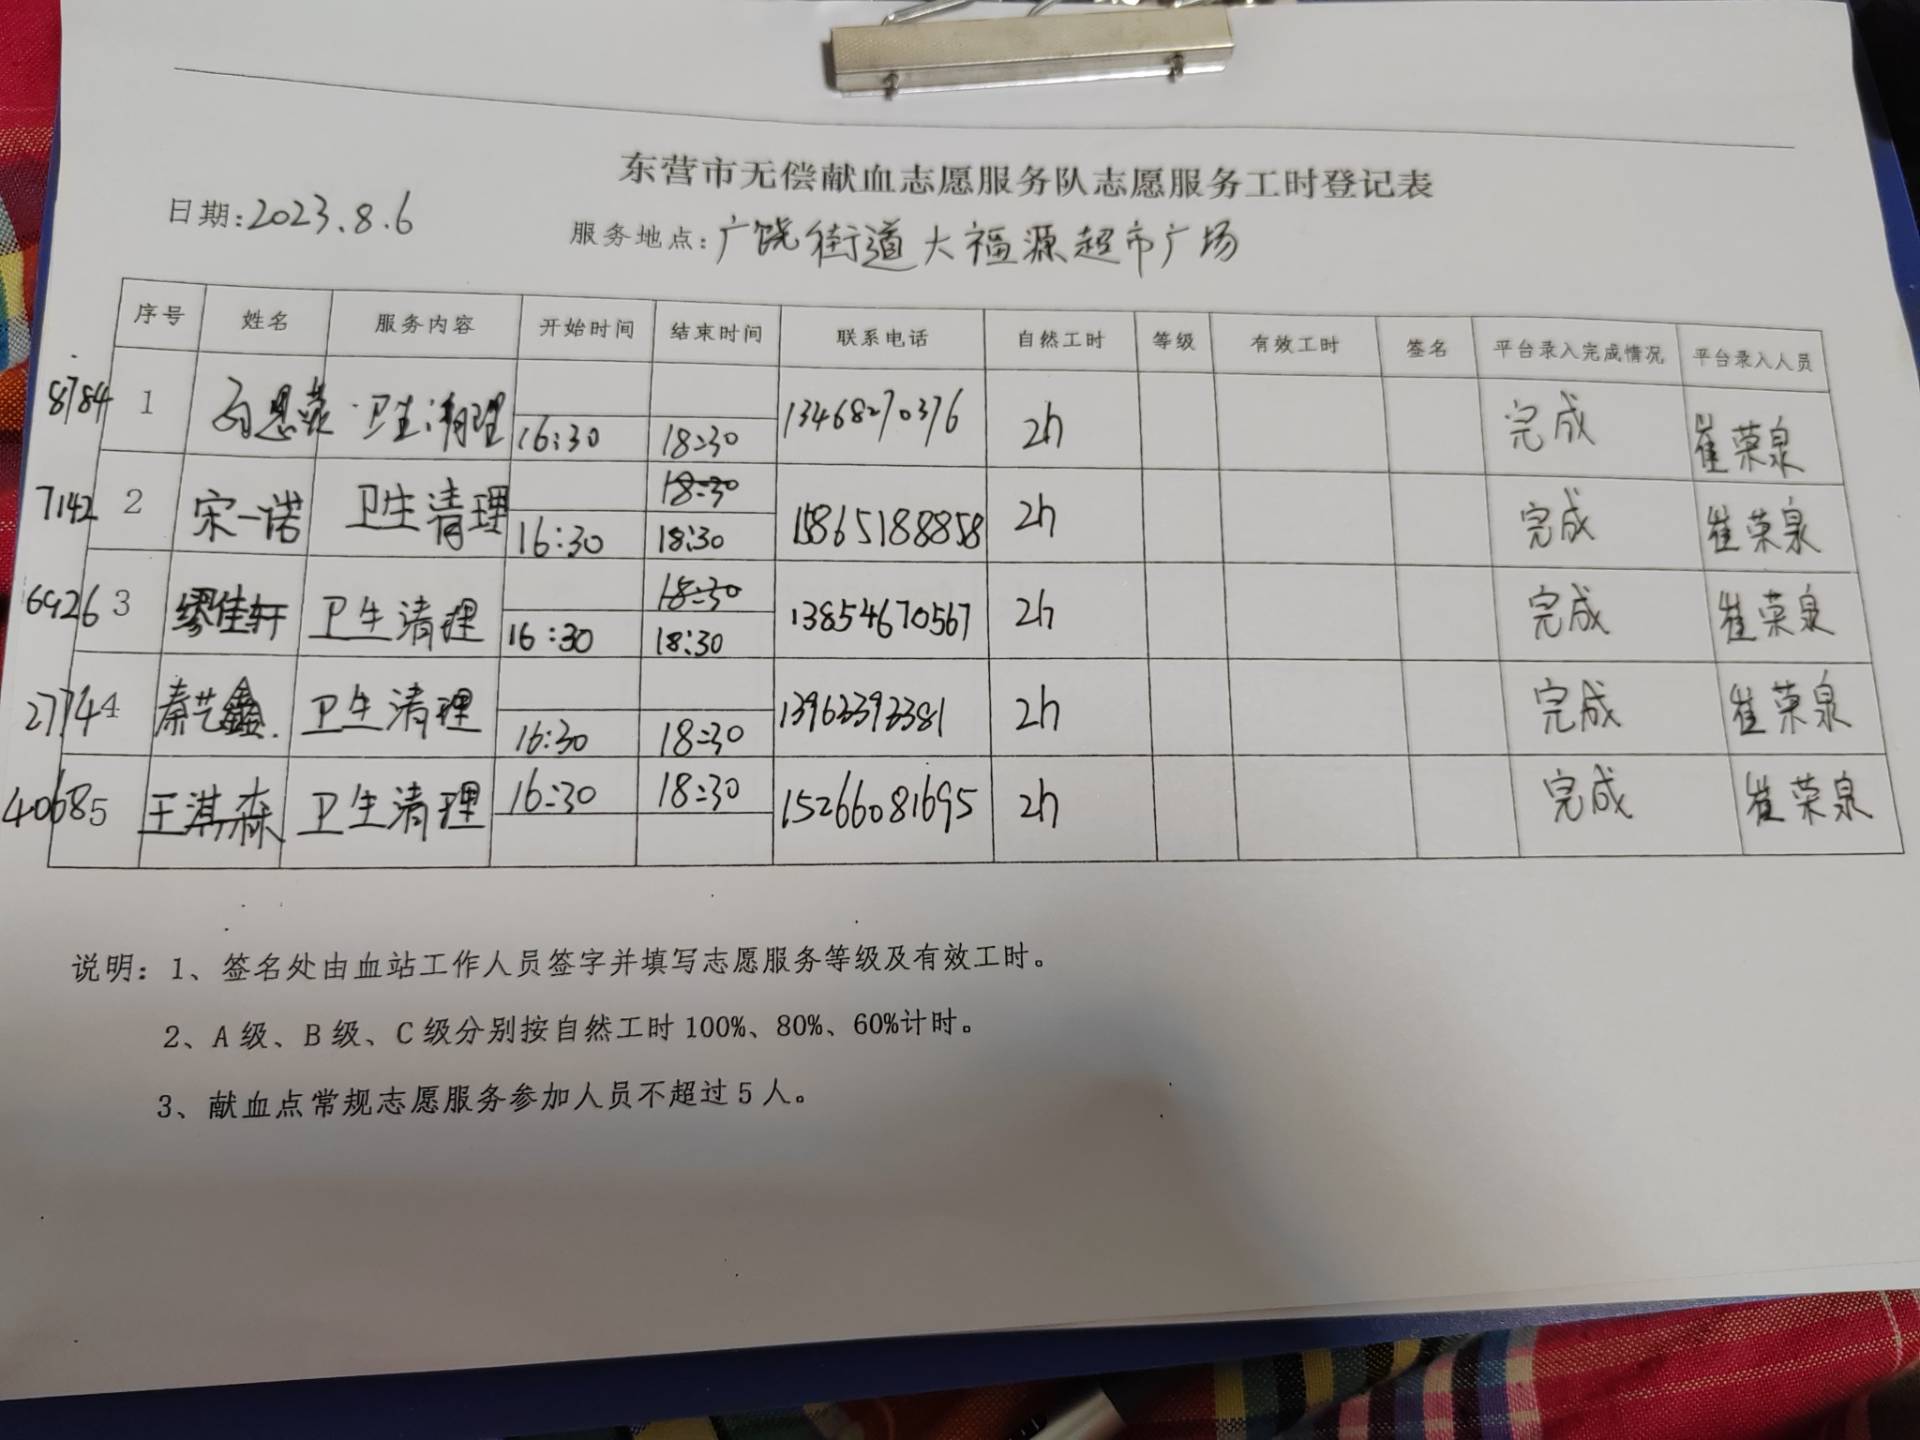 东营市无偿献血志愿服务队志愿服务工时登记表
日期:2023.8.6 服务地点:广饶街道大福源超市广场
序号 姓名 服务内容 开始时间 结束时间 联系电话 自然工时 等级 有效工时 签名 平台录入完成情况 平台录入人员
8784 1 卫生清理 16:30 18:30 13468270376 2h 完成 崔荣泉
18:30
7142 2 宋一诺 卫生清理 16:30 18:30 15865188858 2h 完成 崔荣泉
18:30
6926 3 缪佳轩 卫生清理 16:30 18:30 13854670567 2h 完成 崔荣泉
4 秦艺鑫 卫生清理 16:30 18:30 13963392381 2h 完成 崔荣泉
4068 5 王淇森 卫生清理 16:30 18:30 15266081695 2h 完成 崔荣泉
说明:1、签名处由血站工作人员签字并填写志愿服务等级及有效工时。
2、A级、B级、C级分别按自然工时100%、80%、60%计时。
3、献血点常规志愿服务参加人员不超过5人。